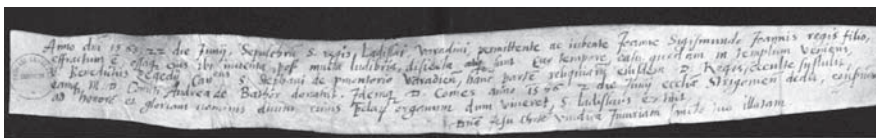 Anno dni 1565 22 die Junij, Sepulcru S. regis Ladislai Varadini, permittente ac iubente Joanne Sigismundo Joannis regis filio,
effractum e, ossaq eius ibi inventa post multa ludibria, disiecta sunt Eo tempore quidam in templum veniens,
Benedictus Zegedij Canens S. Stephani de promontorio Varadien, hanc parte reliquiarum eiusdem D. Regis occulte sustulit,
eamq Ill. D. Comiti Andreae de Bathor donavit. Idemq D. Comes anno 1576 2 die Junij ecclie Strigonien dedit,
ad honore et gloriam nominis divini cuius organum dum viveret, S. Ladislaus extitit
Dne Jesu Christe vindica iniuriam illatam